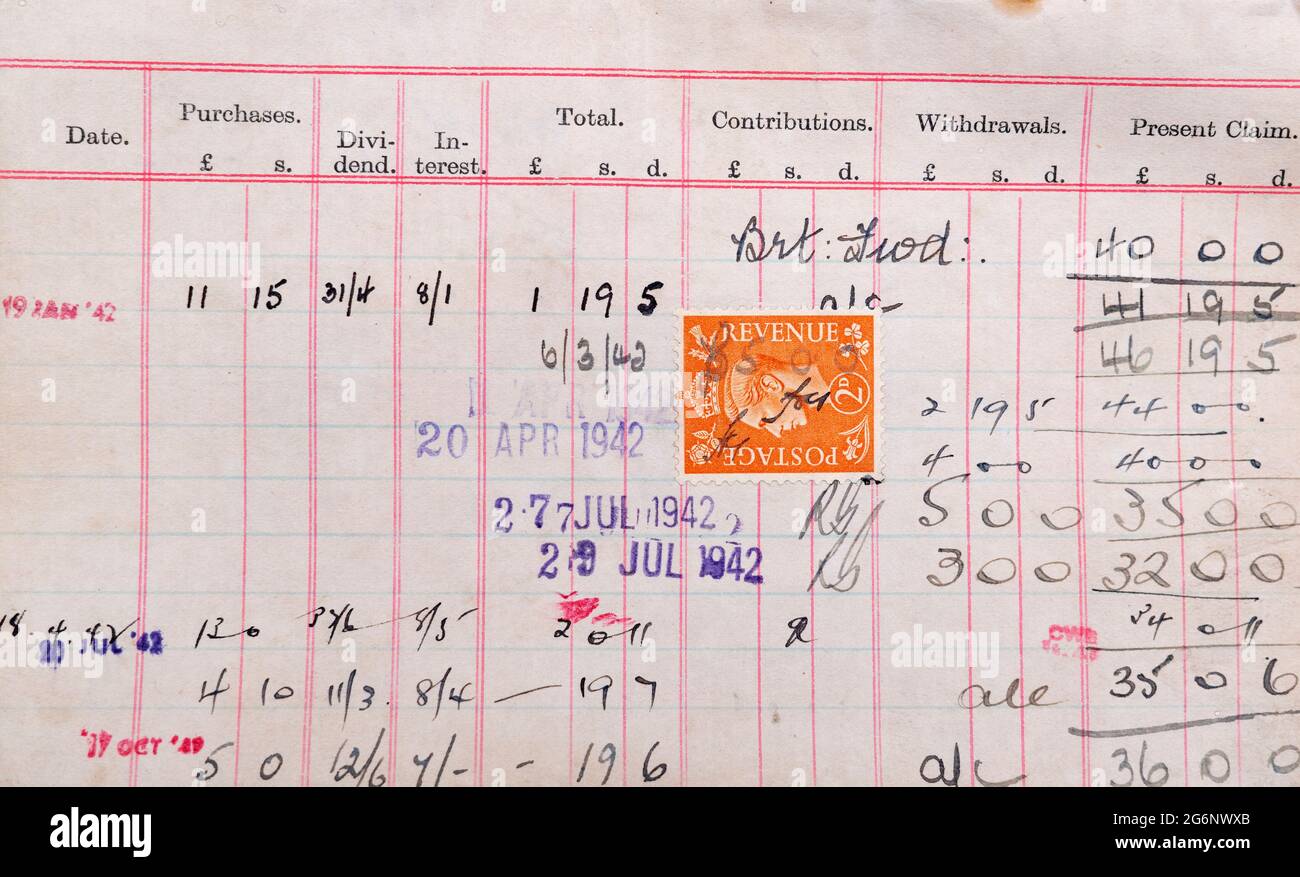 Purchases. Total. Contributions. Withdrawals. Present Claim.
Date. Divi- In-
dend. terest.
£ s. £ s. d. £ s. d. £ s. d. £ s. d.
Brt: Fwd:. 40 0 0
19 JAN '42 11 15 31/4 8/1 1 19 5 a/c 41 19 5
REVENUE
6/3/42 5 0 0 46 19 5
2D
APR 2 19 5 44 00.
20 APR 1942 POSTAGE 4 00 40 00
27 JUL 1942 5 0 0 35 0 0
29 JUL 1942 3 0 0 32 0 0
18.4.42 13 0 37/6 8/5 2 0 11 CWS 34 0 11
JUL '42
4 10 11/3. 8/4 — 19 7 a/c 35 0 6
OCT
5 0 12/6 7/- - 19 6 a/c 36 0 0
alamy
a
alamy Image ID: 2G6NWXB
www.alamy.com